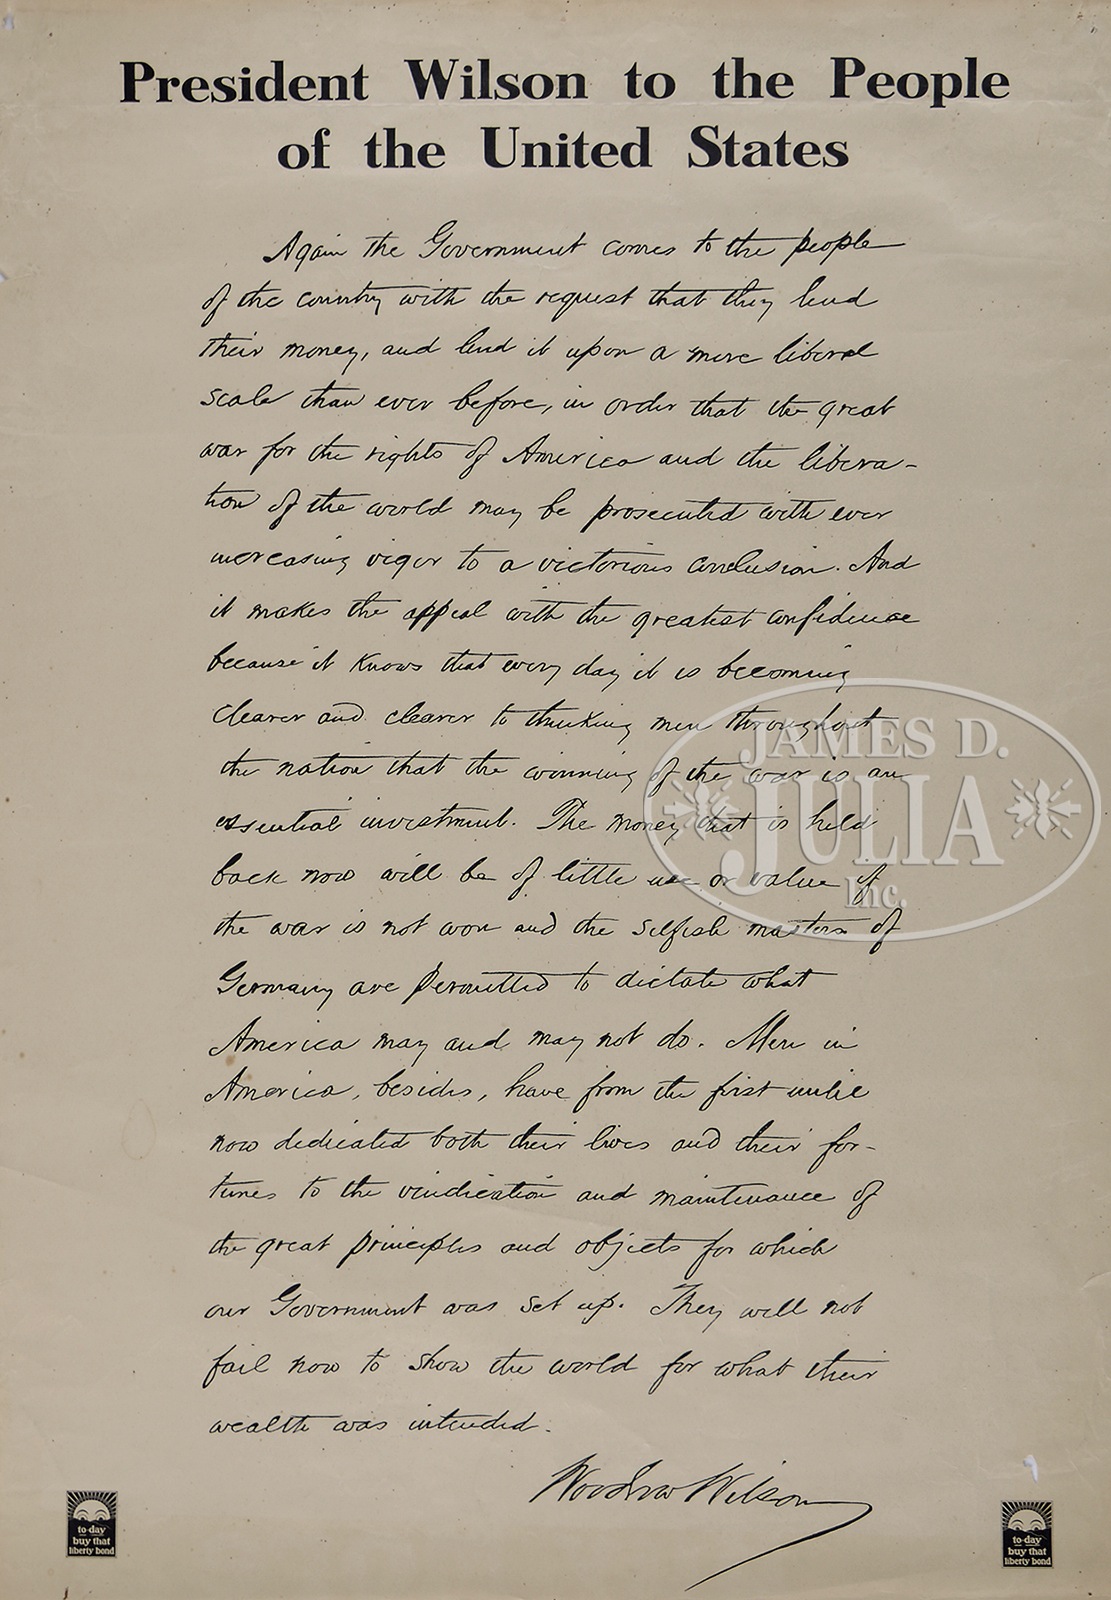 President Wilson to the People
of the United States
Again the Government comes to the people
of the country with the request that they lend
their money, and lend it upon a more liberal
scale than ever before, in order that the great
war for the rights of America and the libera-
tion of the world may be prosecuted with ever
increasing vigor to a victorious conclusion. And
it makes the appeal with the greatest confidence
because it knows that every day it is becoming
clearer and clearer to thinking men throughout
the nation that the winning of the war is an
essential investment. The money that is held
back now will be of little use or value if
the war is not won and the selfish masters of
Germany are permitted to dictate what
America may and may not do. Men in
America, besides, have from the first until
now dedicated both their lives and their for-
tunes to the vindication and maintenance of
the great principles and objects for which
our Government was set up. They will not
fail now to show the world for what their
wealth was intended.
Woodrow Wilson
to-day
buy that
liberty bond
to-day
buy that
liberty bond
JAMES D.
JULIA
Inc.